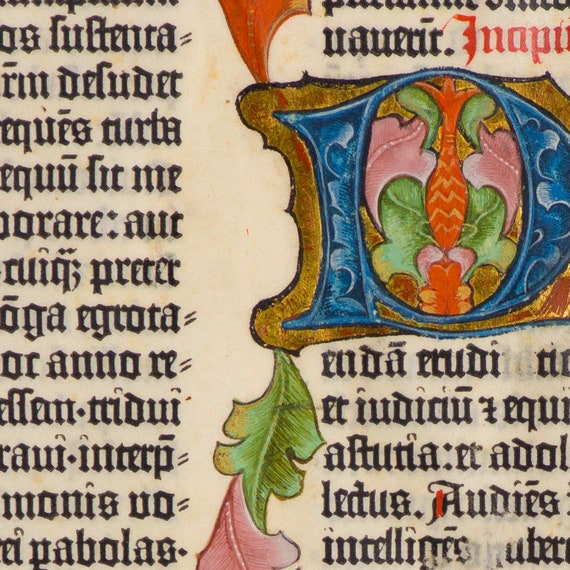 os sustenta⸗
n̄rm desudet
equēs turba
equū sit me
borare: aut
cuiq̄ȝ preter
ōga egrota⸗
oc anno re⸗
essem·tridui
raui·interp̄⸗
monis uo⸗
ei pabolas·
uauerīt. Incipiu
D
endā erudi tio
et iudiciū ⁊ equi
astutia: et adol
lectus. Audiēs
intelligēs guber